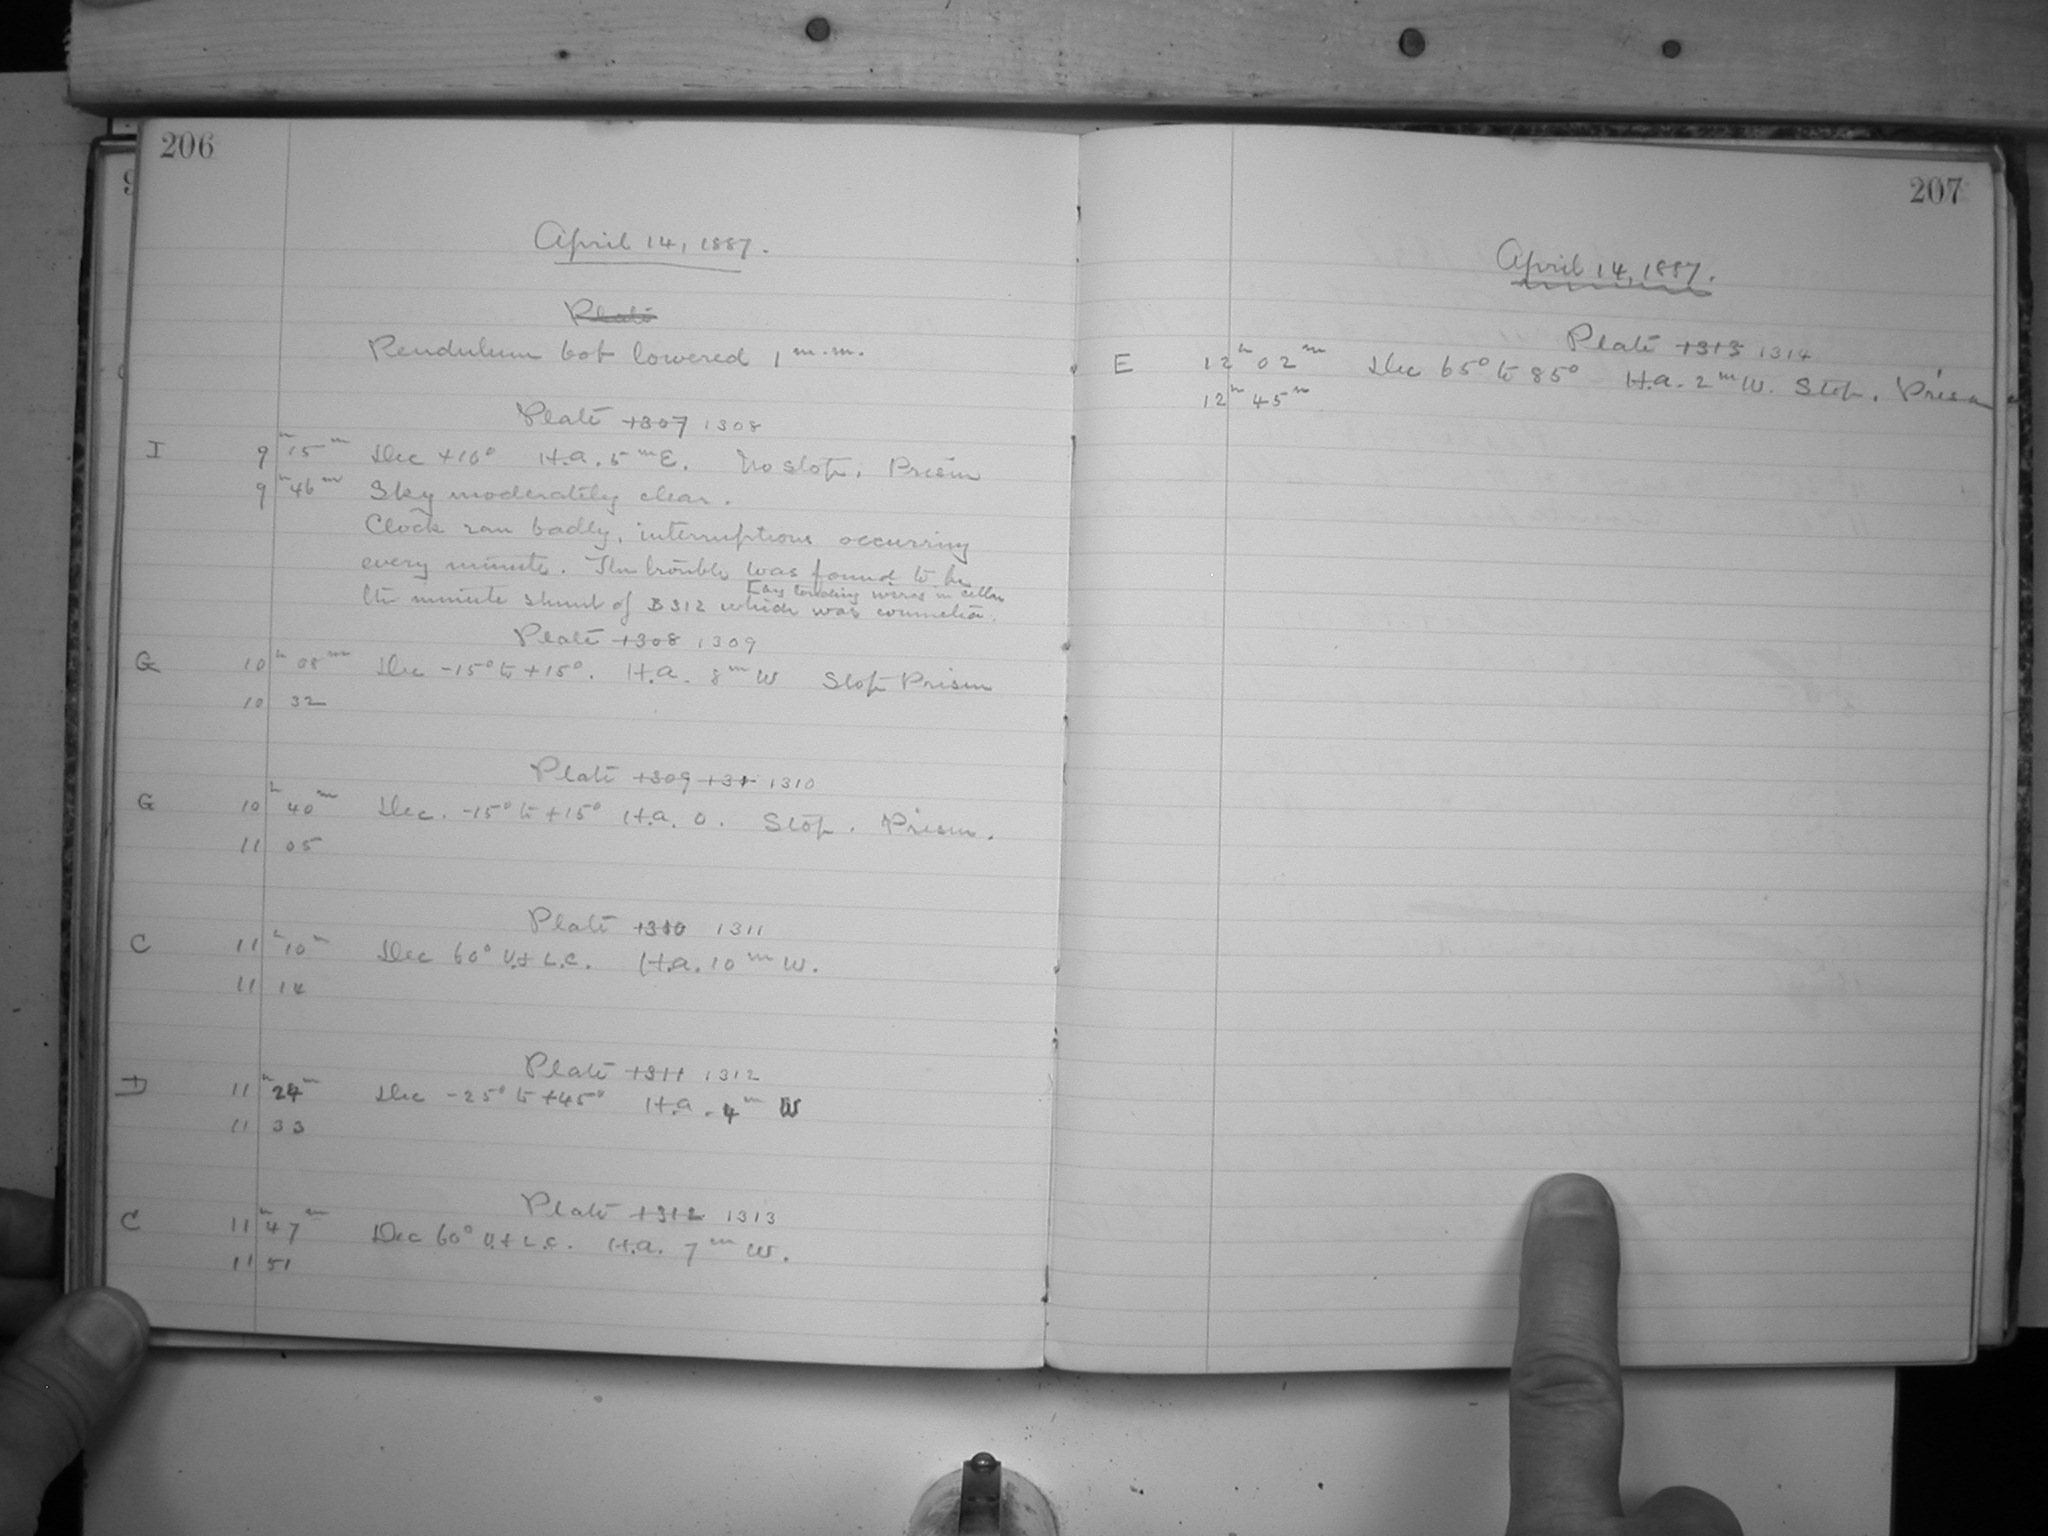 206
April 14, 1887.
Plate
Pendulum bob lowered 1 m.m.
Plate 1307 1308
I 9h 15m Dec +10° H.a. 5m E. No stop. Prism
9h 46m Sky moderately clear.
Clock ran badly, interruptions occurring
every minute. The trouble was found to be
[by touching wires in cellar
the minute shunt of B312 which was connected.
Plate 1308 1309
G 10h 08m Dec -15° to +15°. H.a. 8m W Stop Prism
10 32
Plate 1309 131 1310
G 10h 40m Dec. -15° to +15° H.a. 0. Stop. Prism.
11 05
Plate 1310 1311
C 11h 10m Dec 60° U.+ L.C. H.a. 10m W.
11 14
Plate 1311 1312
D 11h 24m Dec -25° to +45° H.a. 4m W
11 33
Plate 1312 1313
C 11h 47m Dec 60° U.+ L.C. H.a. 7m W.
11 51
207
April 14, 1887.
Plate 1313 1314
E 12h 02m Dec 65° to 85° H.a. 2m W. Stop. Prism
12h 45m